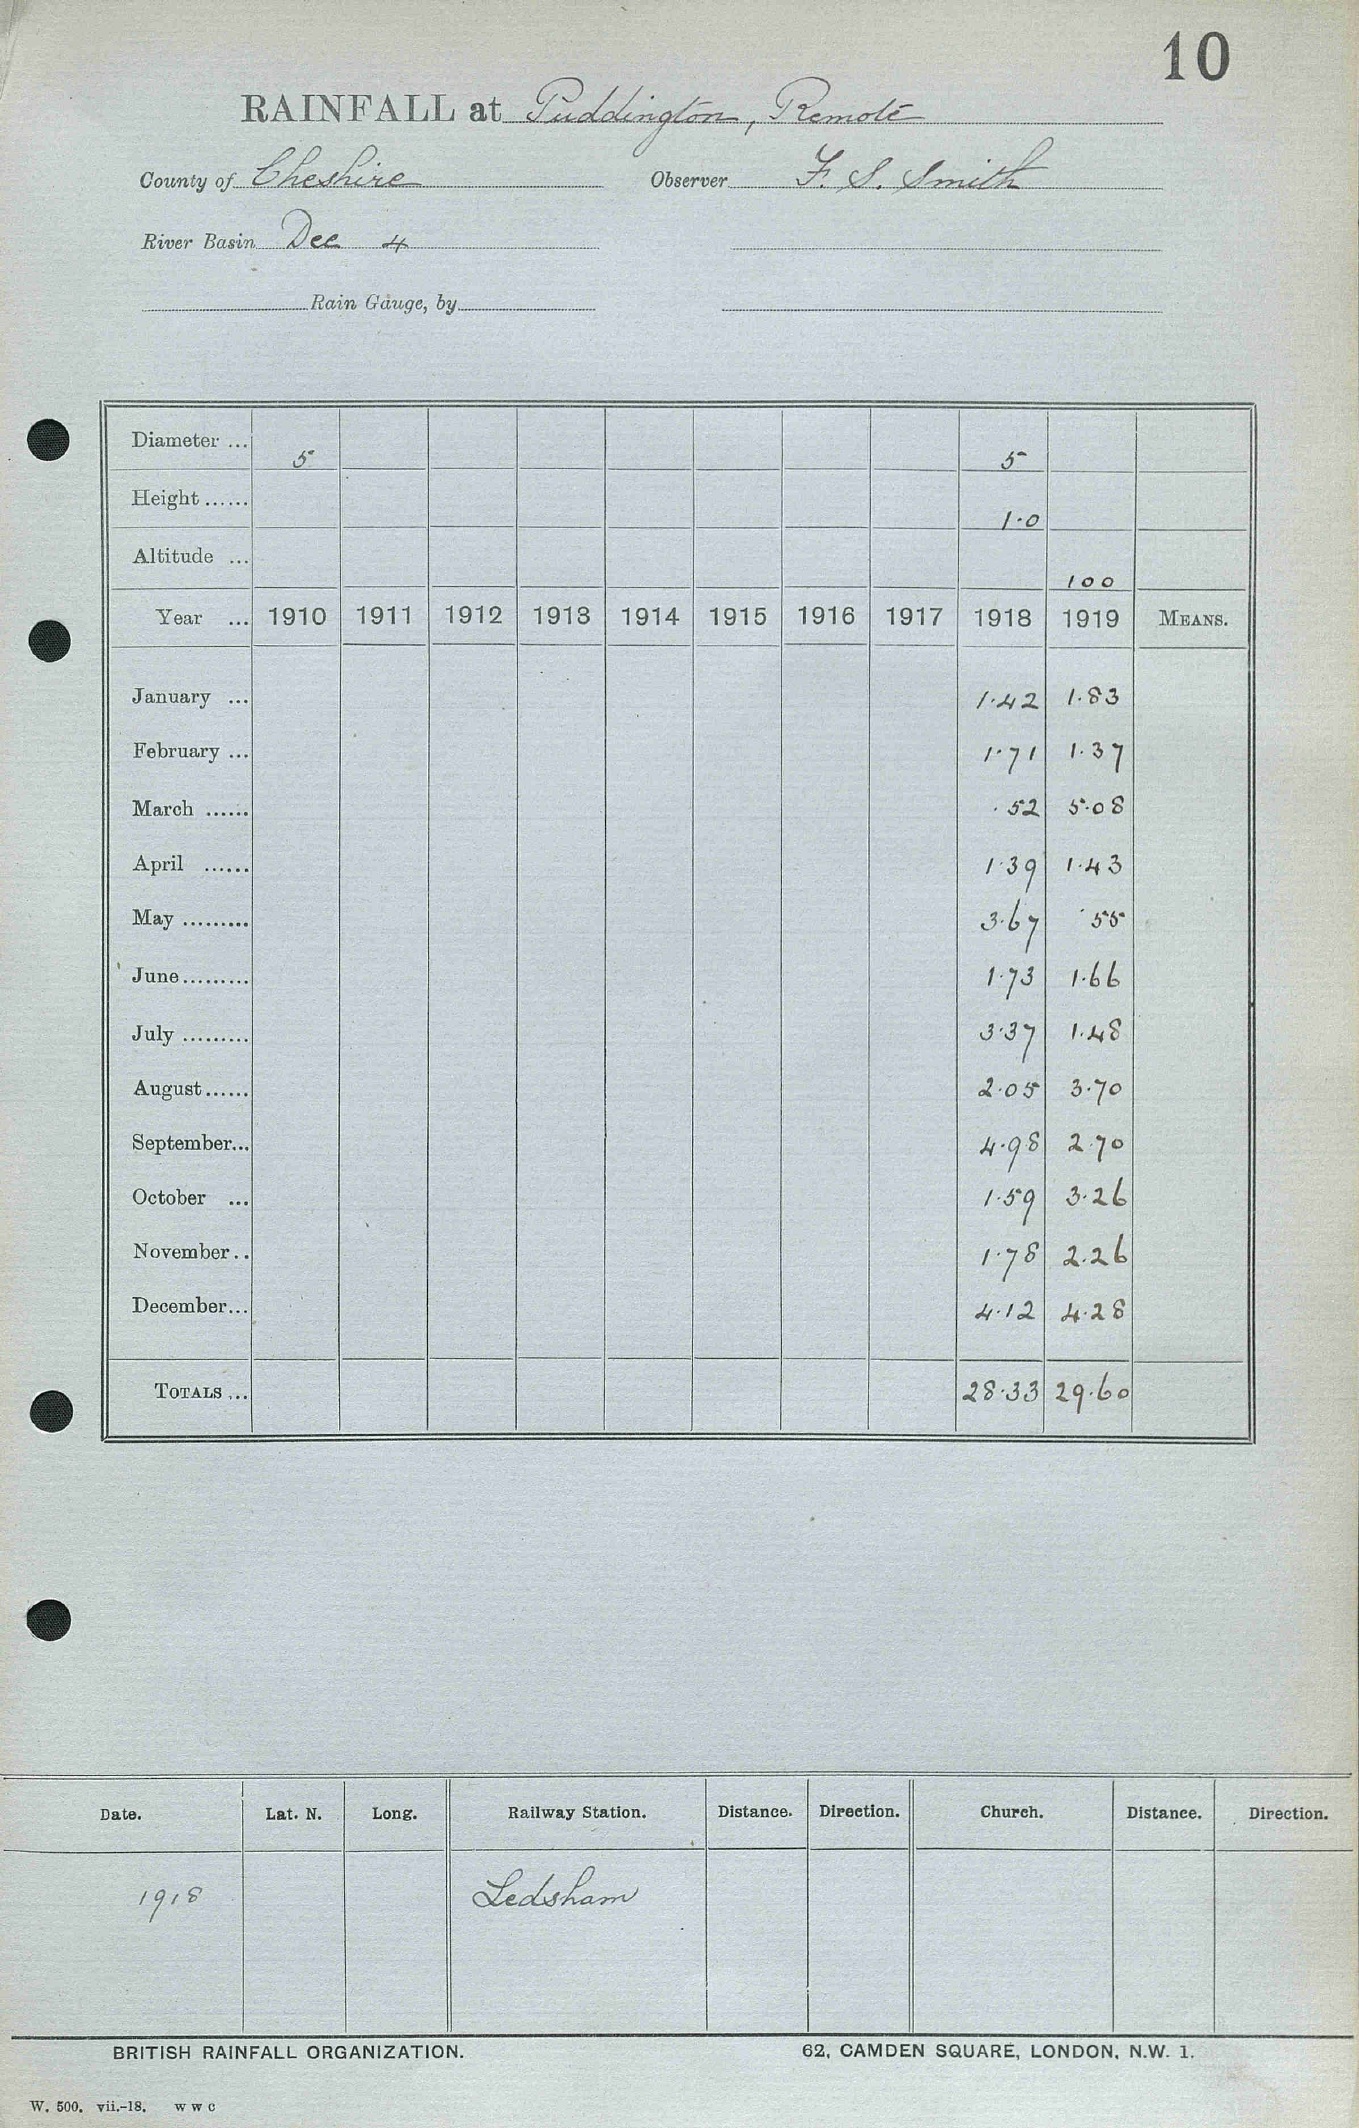 10
RAINFALL at Puddington, Remote
County of Cheshire Observer F. S. Smith
River Basin Dee 4
Rain Gauge, by
Diameter ... 5 5
Height ...... 1.0
Altitude ... 100
Year ... 1910 1911 1912 1913 1914 1915 1916 1917 1918 1919 MEANS.
January ... 1.42 1.83
February ... 1.71 1.37
March ...... .52 5.08
April ...... 1.39 1.43
May ......... 3.67 .55
June ......... 1.73 1.66
July ......... 3.37 1.48
August ...... 2.05 3.70
September... 4.98 2.70
October ... 1.59 3.26
November.. 1.78 2.26
December... 4.12 4.28
TOTALS ... 28.33 29.60
Date. Lat. N. Long. Railway Station. Distance. Direction. Church. Distance. Direction.
1918 Ledsham
BRITISH RAINFALL ORGANIZATION. 62, CAMDEN SQUARE, LONDON, N.W. 1.
W. 500. vii.-18. w w c